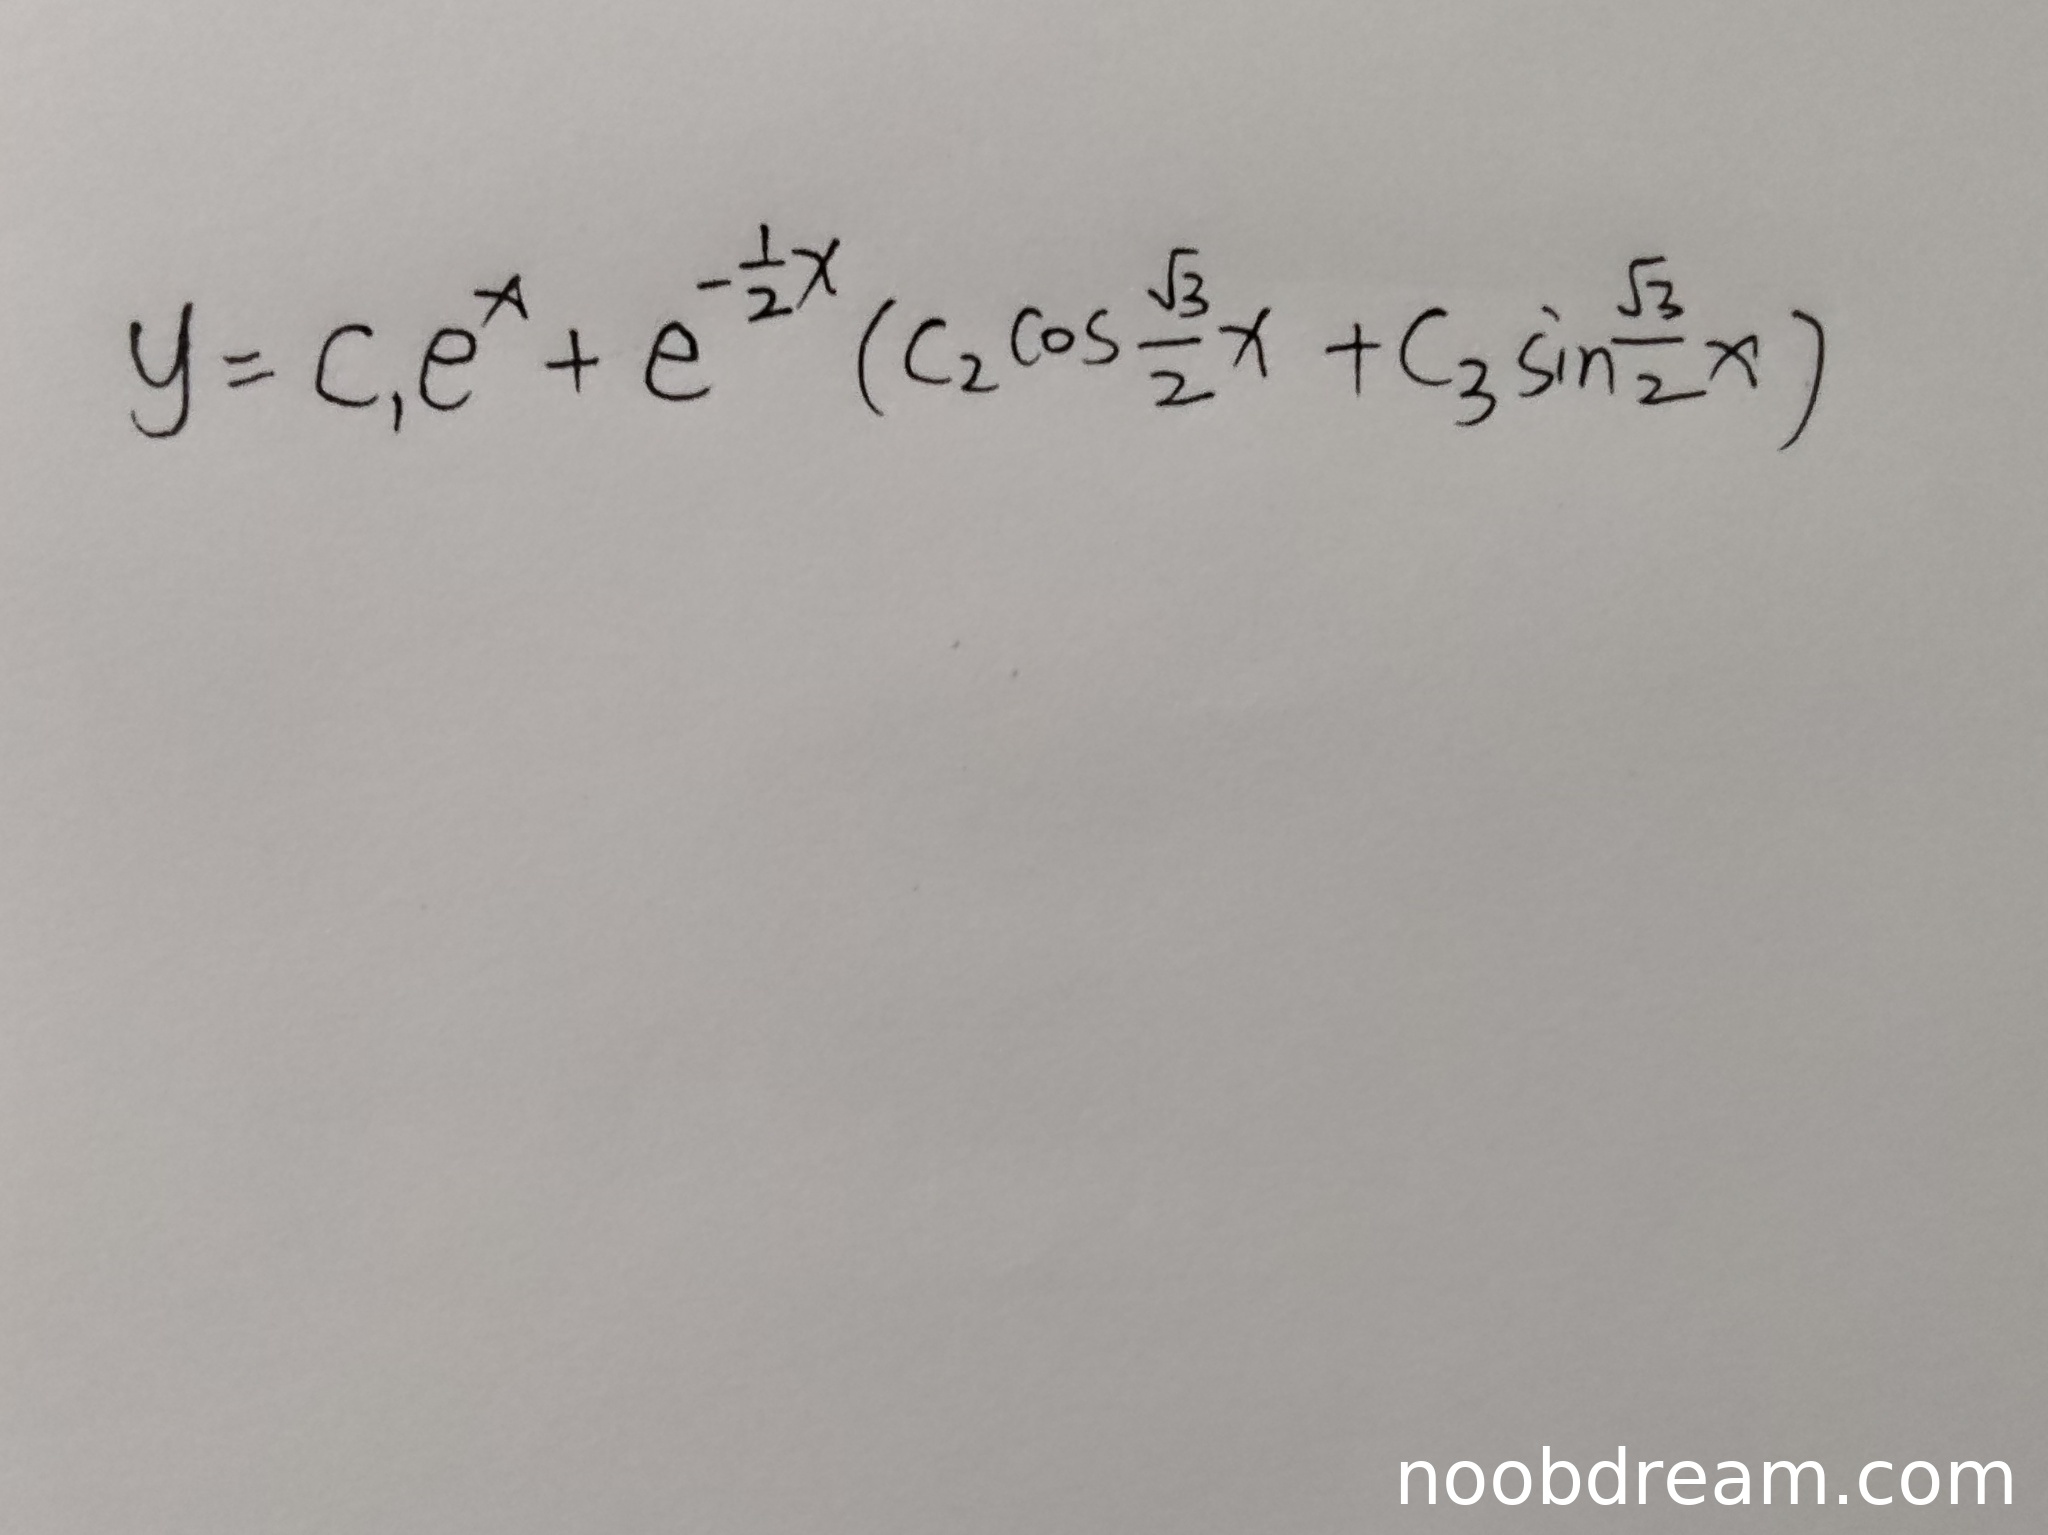 y = C₁eˣ + e^(-1/2 x) (C₂ cos √3/2 x + C₃ sin √3/2 x)
noobdream.com